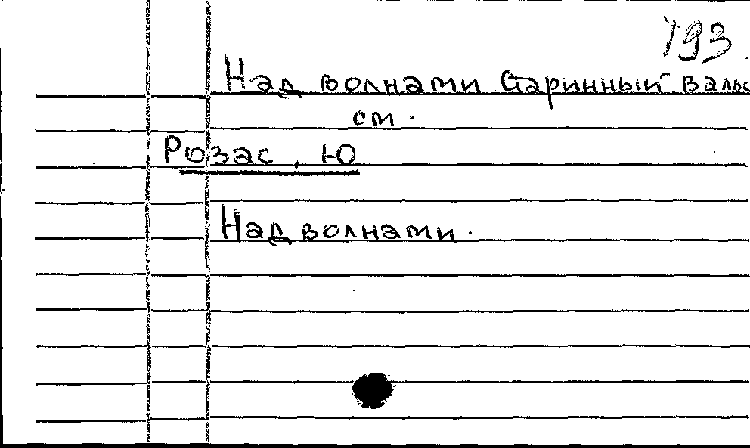 793
Над волнами Старинный вальс
см.
Розас, Ю
Над волнами.